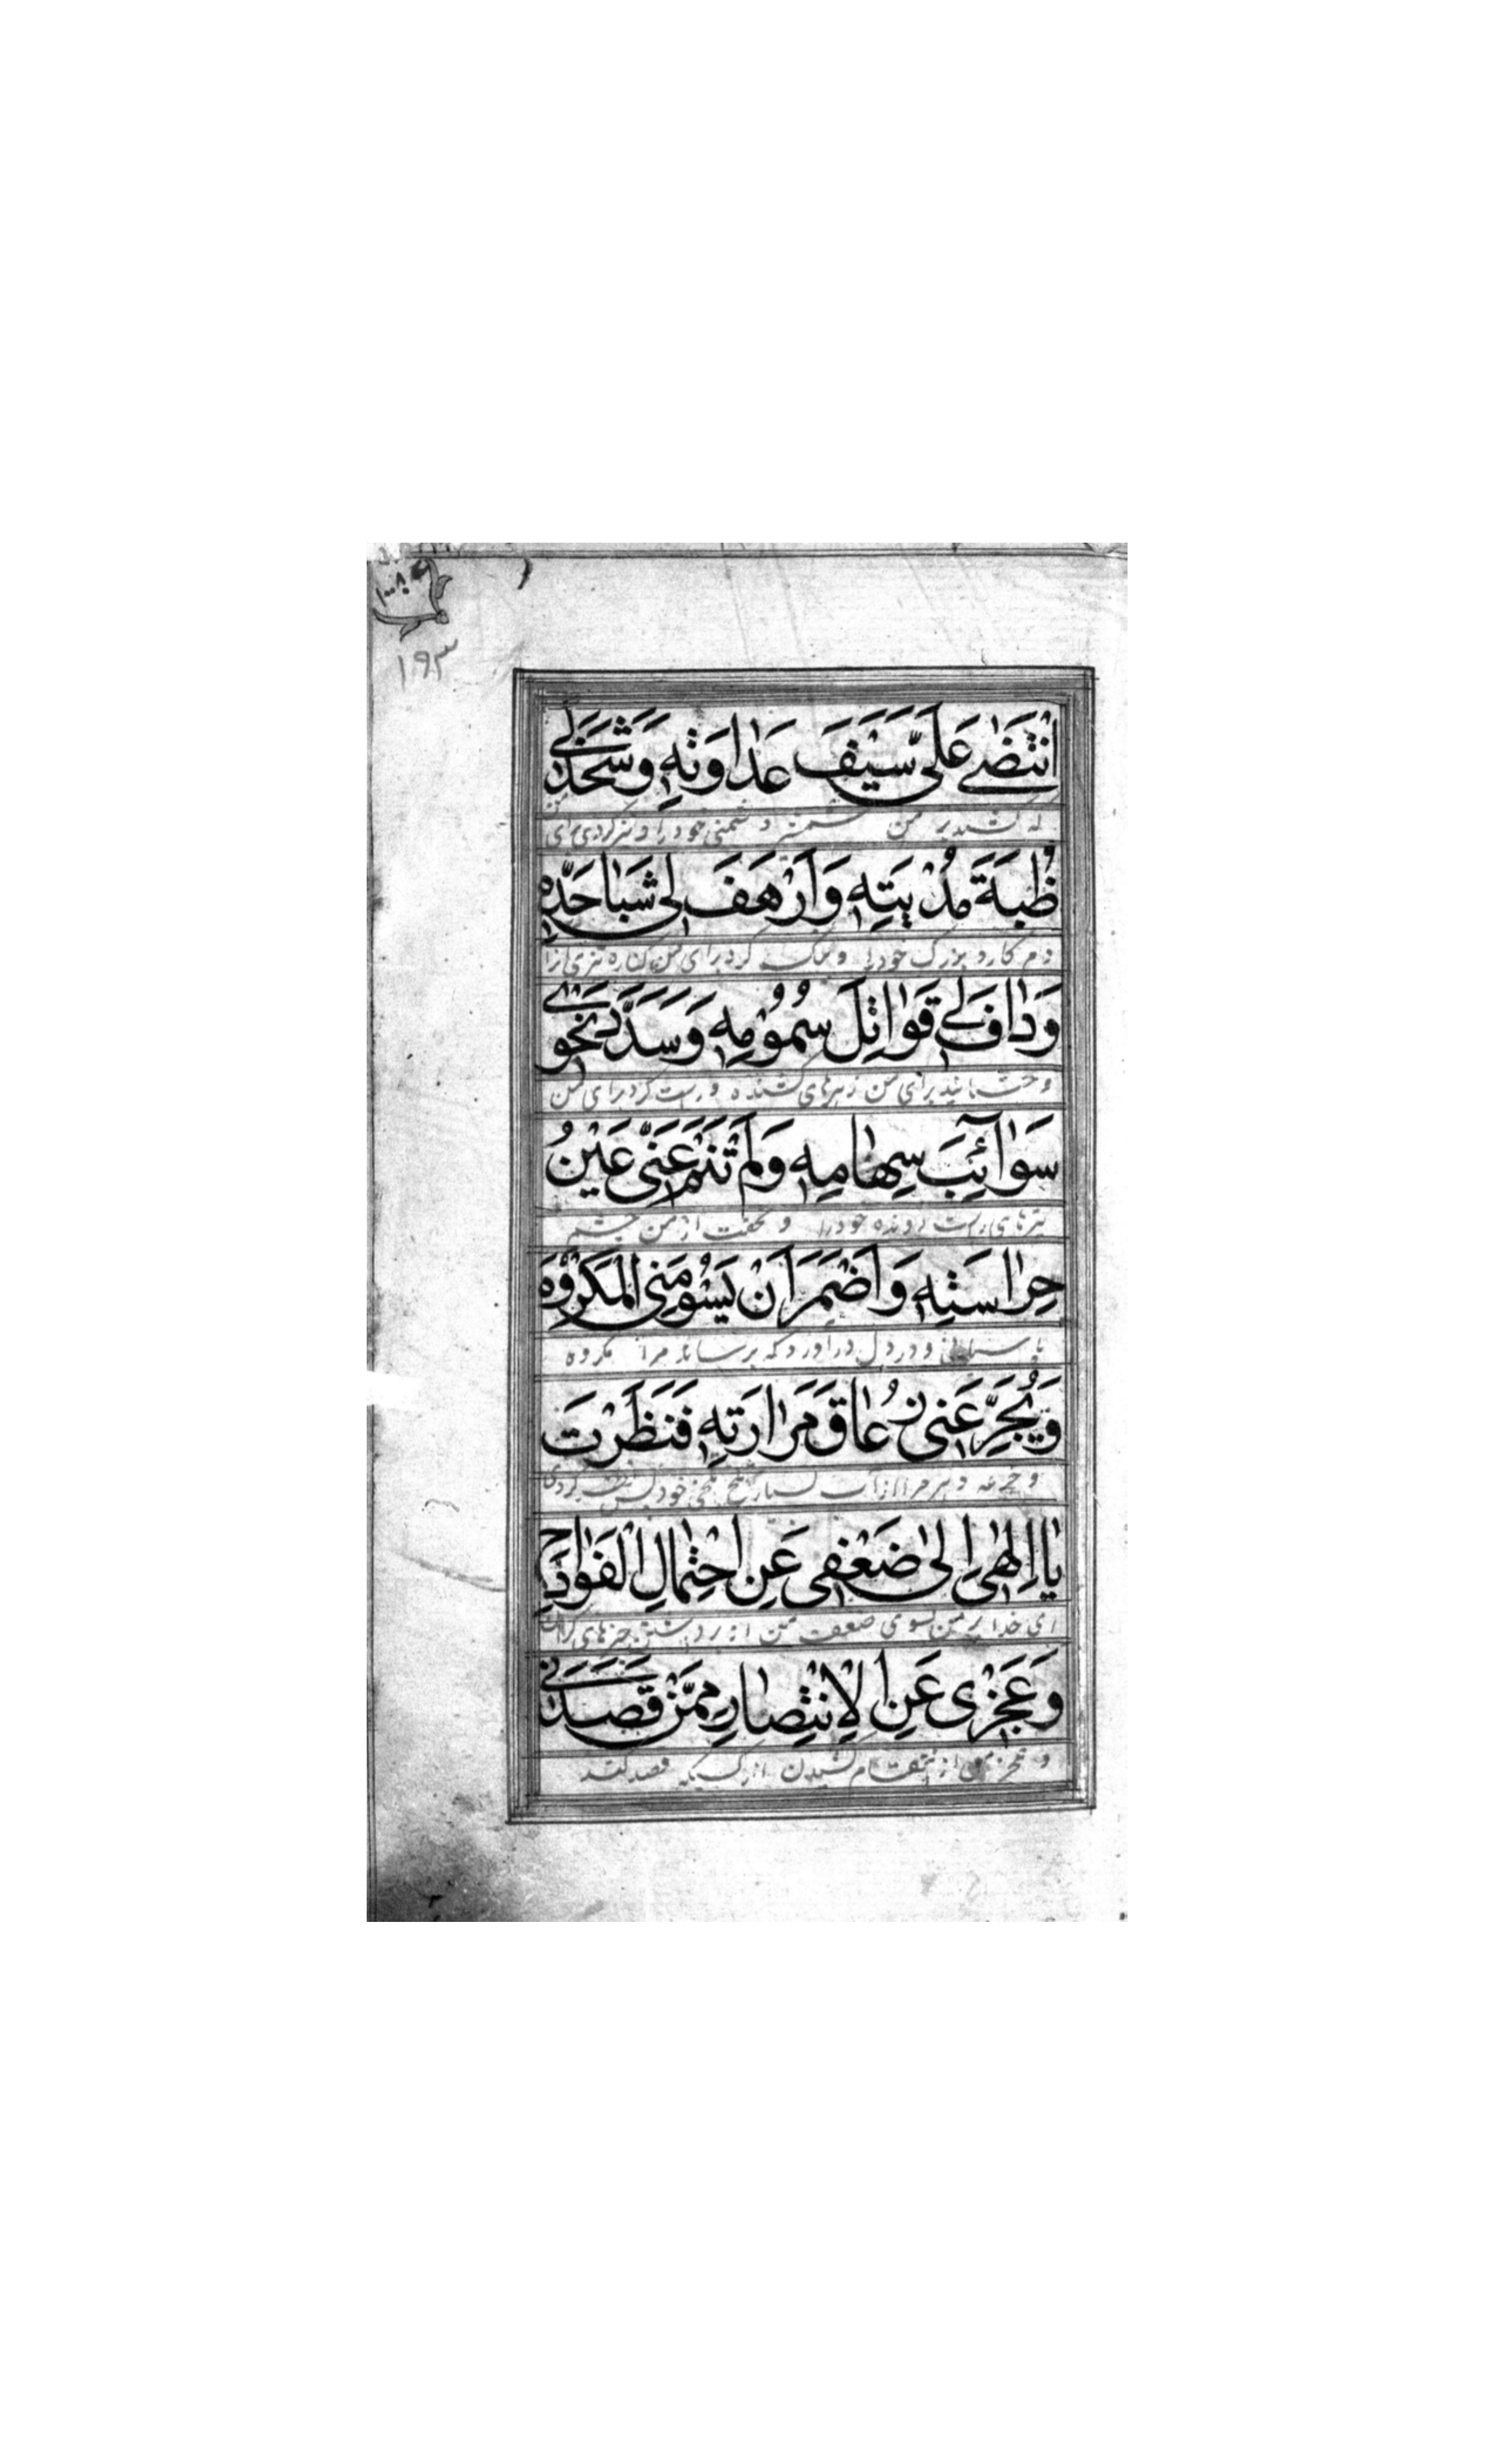 ١٩٣
انْتَضىٰ عَلَىَّ سَيْفَ عَدٰاوَتِهِ وَشَحَذَ لى
که کشید بر من شمشیر دشمنی خود را و تیز کردی برای
ظُبَةَ مُدْيَتِهِ وَاَرْهَفَ لى شَبٰا حَدِّهِ
دم کارد بزرک خود را و کرد برای من کناره تیزی از
وَدٰافَ لى قَوٰاتِلَ سُمُوُمِهِ وَسَدَّدَ نَحْوى
و برای من زهرهای کشنده و راست کرد برای من
سَوٰآئِبَ سِهٰامِهِ وَلَمْ تَنَمْ عَنّى عَيْنُ
تیرهای راست رونده خود را و نخفت از من چشم
حِرٰاسَتِهِ وَاَضْمَرَ اَنْ يَسُوْمَنِى الْمَكْرُوْهَ
پاسبانی و در دل در اورد که برساند مرا مکروه
وَيُجَرِّعَنى زُعٰاقَ مَرٰارَتِهِ فَنَظَرْتَ
و جرعه دهد مرا از آب بسیار تلخ تلخی خود پس نظر کردی
يٰا اِلٰهى اِلىٰ ضَعْفى عَنِ احْتِمٰالِ الْفَوٰادِحِ
ای خدای من بسوی ضعف من از برداشتن چیزهای کران
وَعَجْزى عَنِ الْاِنْتِصٰارِ مِمَّنْ قَصَدَنى
و عجز من از انتقام کشیدن از کسیکه قصد کند